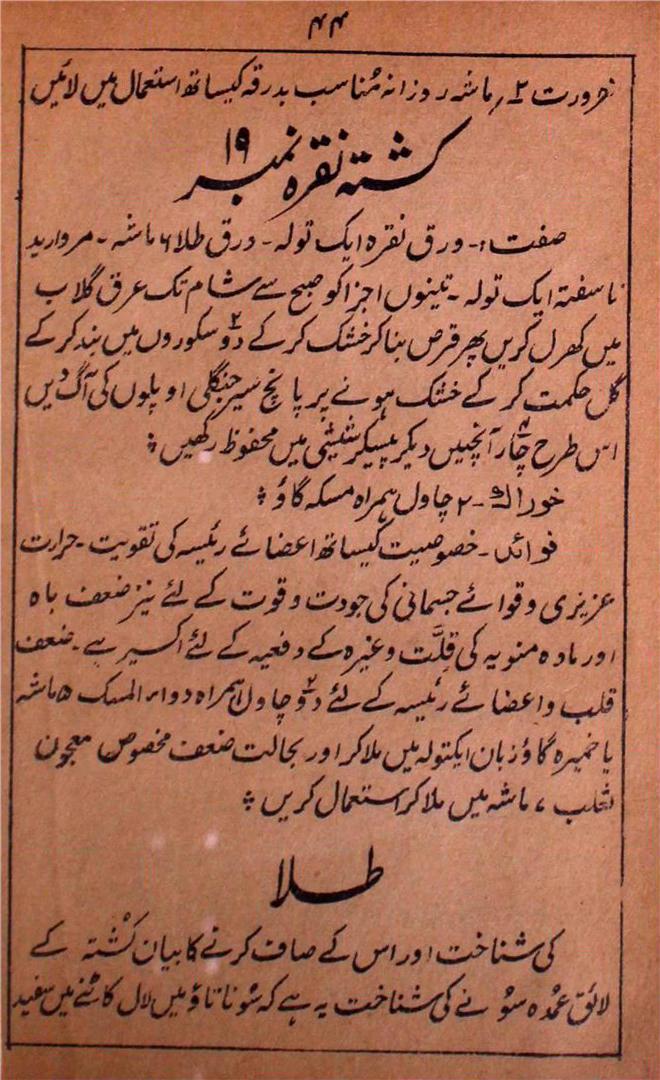 ۴۴
ضرورت ۲؍ ماشہ روزانہ مُناسب بدرقہ کیساتھ استعمال میں لائیں
کشتہ نقرہ نمبر ۱۹
صفت:- ورق نقرہ ایک تولہ - ورق طلا ۶ ماشہ - مروارید
ناسفتہ ایک تولہ - تینوں اجزا کو صبح سے شام تک عرق گلاب
میں کھرل کریں پھر قرص بنا کر خشک کر کے دو۲ سکوروں میں بند کر کے
گل حکمت کر کے خشک ہونے پر پانچ سیر جنگلی اوپلوں کی آگ دیں
اس طرح چار۴ آنچیں دیکر پیسکر شیشی میں محفوظ رکھیں ÷
خوراک - ۲ چاول ہمراہ مسکہ گاؤ ÷
فوائد - خصوصیت کیساتھ اعضائے رئیسہ کی تقویت - حرارت
عزیزی و قوائے جسمانی کی جودت و قوت کے لئے نیز ضعف باہ
اور مادہ منویہ کی قِلَّت وغیرہ کے دفعیہ کے لئے اکسیر ہے - ضعف
قلب و اعضائے رئیسہ کے لئے دو۲ چاول ہمراہ دواء المسک ۵ ماشہ
یا خمیرہ گاؤزبان ایکتولہ میں ملا کر اور بحالت ضعف مخصوص معجون
ثعلب ۷ ماشہ میں ملا کر استعمال کریں ÷
طلا
کی شناخت اور اس کے صاف کرنے کا بیان کُشتہ کے
لائق عُمدہ سونے کی شناخت یہ ہے کہ سونا تاؤ میں لال کاٹنے میں سفید